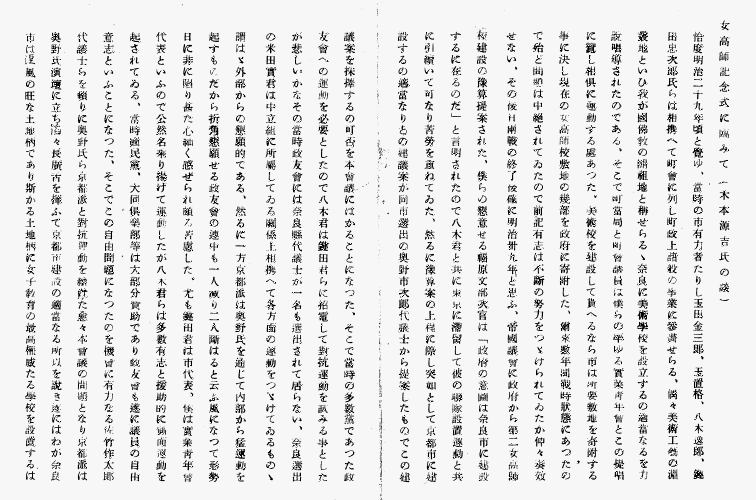 女高師記念式に臨みて（木本源吉氏の談）
恰度明治二十九年頃と覺ゆ、當時の市有力者たりし玉田金三郎、玉置格、八木逸郎、鍵
田忠次郎氏らは相携へて町會に列し町政上諸般の事業に參畫せらる、偶々美術工藝の淵
叢地といひ我が國佛敎の淵祖地と稱せらるゝ奈良に美術學校を設立するの適當なるを力
說唱導されたのである、そこで町當局と町會議員は僕らの牽ゆる實業靑年會とこの提唱
に賛し相倶に運動する處あつた、美術校を建設して貰へるなら市は所要敷地を寄附する
事に決し現在の女高師校敷地の幾部を政府に寄附した、爾來數年間戰時狀態にあつたの
で殆ど問題は中絕されてゐたので前記有志は不斷の努力をつゞけられてゐたが仲々奏效
せない、その後日露戰の終了後確に明治卅九年と思ふ、帝國議會に政府から第二女高師
校建設の豫算提案された、僕らの懇意せる福原文部次官は「政府の意圖は奈良市に建設
するに在るのだ」と言明されたので八木君と共に東京に滯留して彼の聯隊設置運動と共
に引續いて可なり苦勞を重ねてゐた、然るに豫算案の上程に際し突如として京都市に建
設するの適當なりとの建議案が同市選出の奧野市次郎代議士から提案したものでこの建
議案を採擇するの可否を本會議にはかることになつた、そこで當時の多數黨であつた政
友會への運動を必要としたので八木君は鍵田君らに招電して對抗運動を試みる事とした
が悲しいかなその當時政友會には奈良縣代議士が一名も選出されて居らない、奈良選出
の米田實君は中立組に所屬してゐる關係上相携へて各方面の運動をつゞけてゐるものゝ
謂はゞ外部からの懇願的である、然るに一方京都派は奧野氏を通じて內部から猛運動を
起すものだから折角懇願せる政友會の連中も一人減り二人踏はると云ふ風になつて形勢
日に非に陷り甚だ心細く感ぜられ頗る苦慮した、尤も鍵田君は市代表、僕は實業靑年會
代表といふので公然名乘り揚げて運動したが八木君らは多數有志と援助的に側面運動を
起されてゐる、當時國民黨、大同俱樂部等は大部分賛助であり政友會も遂に議員の自由
意志といふことになつた、そこでこの自由問題になつたのを機會に有力なる佐竹作太郞
代議士らを賴りに奧野氏ら京都派と對抗運動を續けた愈々本會議の問題となり京都派は
奧野氏演壇に立ち滔々長廣舌を揮ふて京都市建設の適當なる所以を說き遂にはわが奈良
市は淫風の旺な土地柄であり斯かる土地柄に女子敎育の最高權威たる學校を設置するは